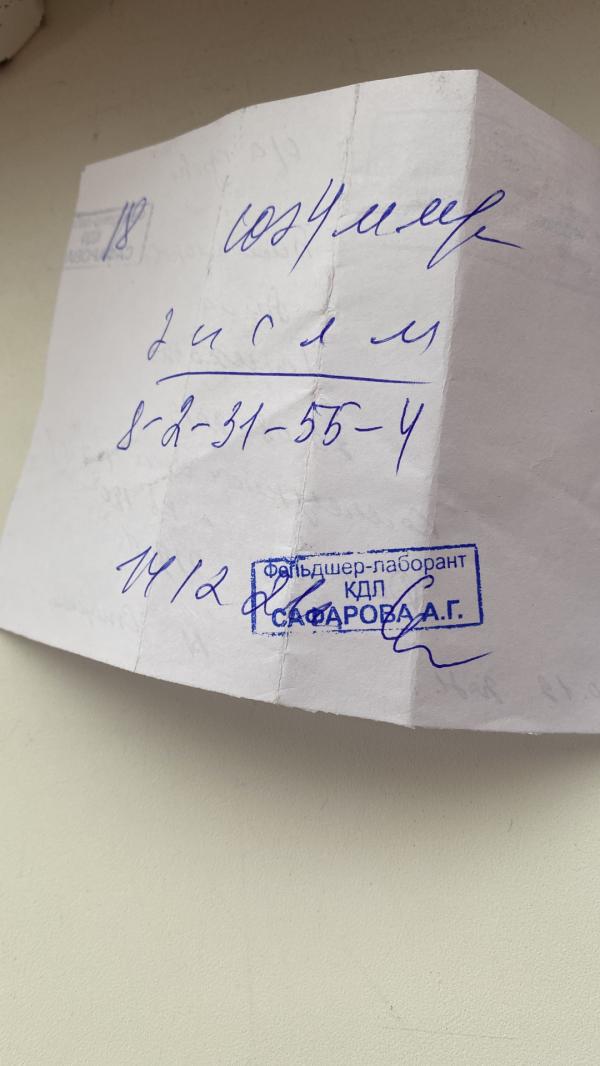 18 соэ 4 мм/ч
э п с л м
8-2-31-55-4
14/2
Фельдшер-лаборант
КДЛ
САФАРОВА А.Г.